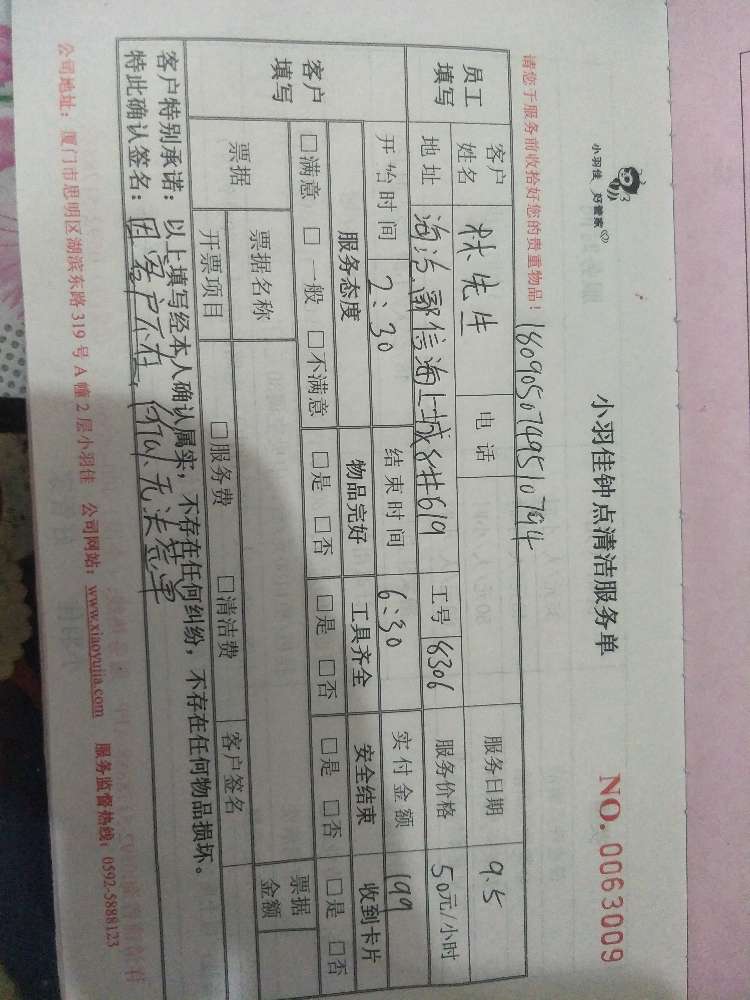 小羽佳 好管家
小羽佳钟点清洁服务单
NO. 0063009
请您于服务前收拾好您的贵重物品！
18090507495107914
员工填写
客户姓名 林先生 电话 服务日期 9.5
地址 海沧 信海上城 619 工号 8306 服务价格 50元/小时
开始时间 2:30 结束时间 6:30 实付金额 199
客户填写
服务态度 物品完好 工具齐全 安全结束 收到卡片
□满意 □一般 □不满意 □是 □否 □是 □否 □是 □否 □是 □否
票据 票据名称 客户签名 票据金额
开票项目 □服务费 □清洁费
客户特别承诺：以上填写经本人确认属实，不存在任何纠纷，不存在任何物品损坏。
特此确认签名：因客户不在，所以无法签单
公司地址：厦门市思明区湖滨东路319号A幢2层小羽佳 公司网站：www.xiaoyujia.com 服务监督热线：0592-5888123